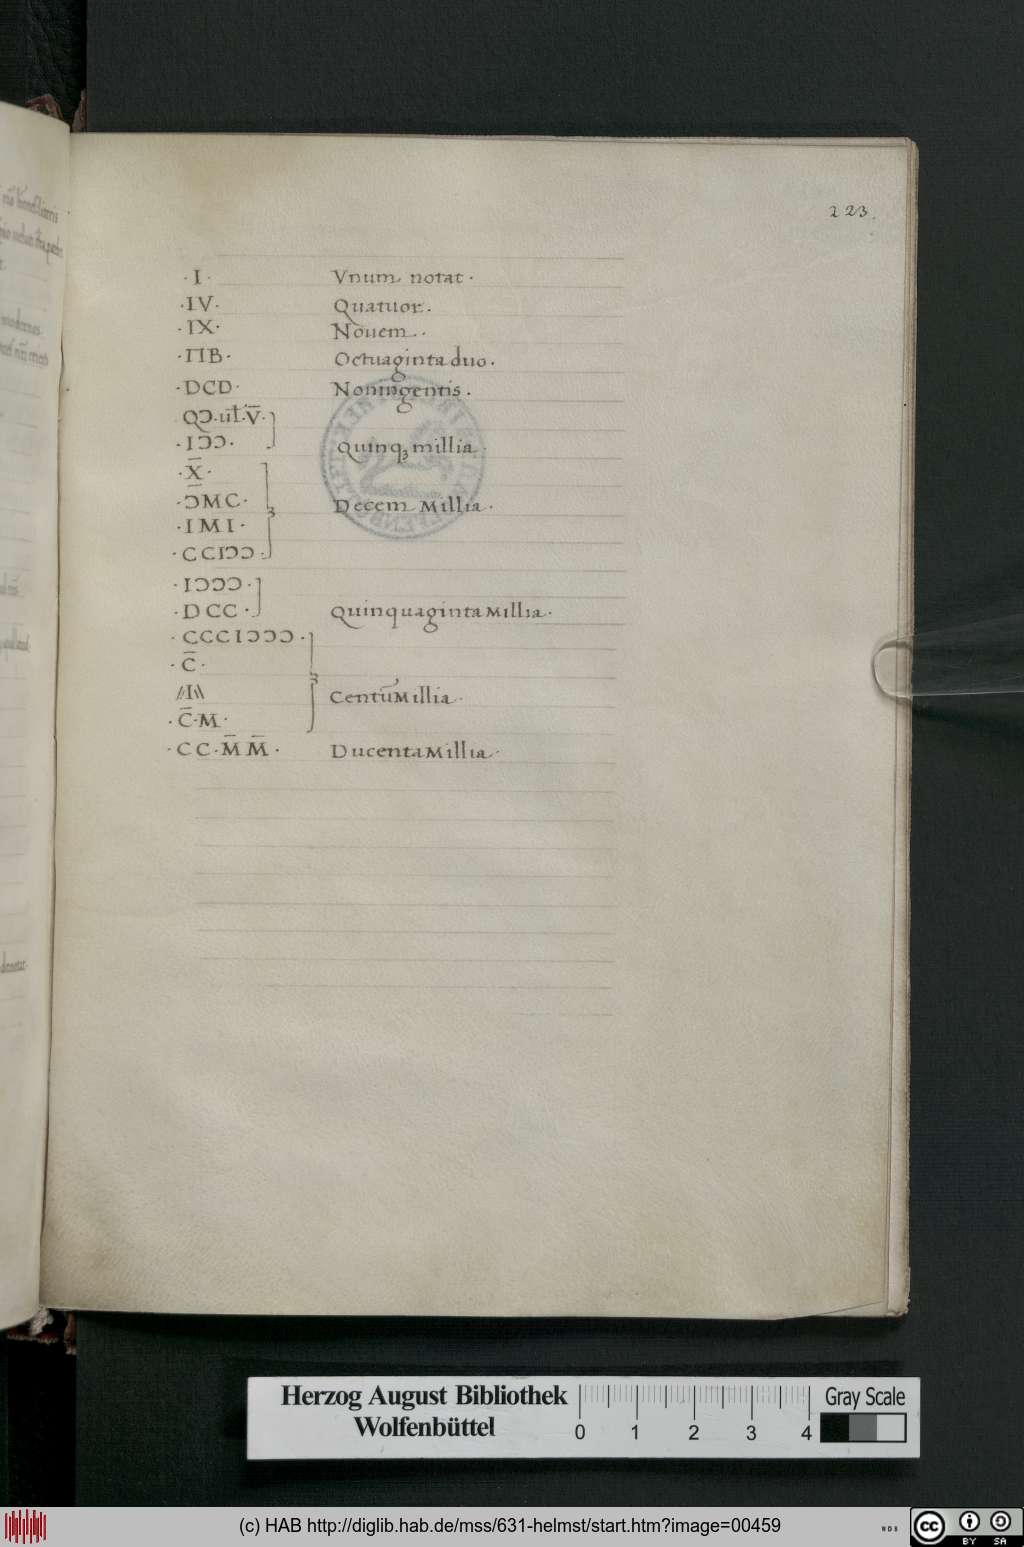 223.
·I· Vnum notat·
·IV· Quatuor·
·IX· Nouem·
·ΠB· Octuaginta duo·
·DCD· Noningentis·
QƆ·ul̄·V̄·
·IƆƆ· Quinqꝫ millia
·X̄·
·ƆMC· Decem Millia·
·IMI·
·CCIƆƆ·
·IƆƆƆ·
·DCC· Quinquaginta Millia·
·CCCIƆƆƆ·
·C̄·
//I\\ Centū Millia·
·C̄·M·
·CC·M̄M̄· Ducenta Millia·
Herzog August Bibliothek
Wolfenbüttel
0 1 2 3 4
Gray Scale
(c) HAB http://diglib.hab.de/mss/631-helmst/start.htm?image=00459
WDB
cc BY SA